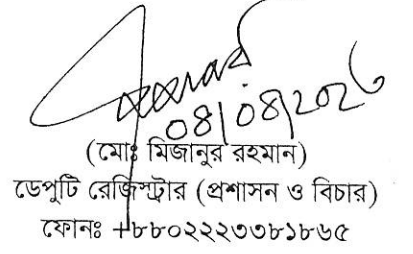 ০৪/০৪/২০২৬
(মোঃ মিজানুর রহমান)
ডেপুটি রেজিস্ট্রার (প্রশাসন ও বিচার)
ফোনঃ +৮৮০২২২৩৩৮১৮৬৫